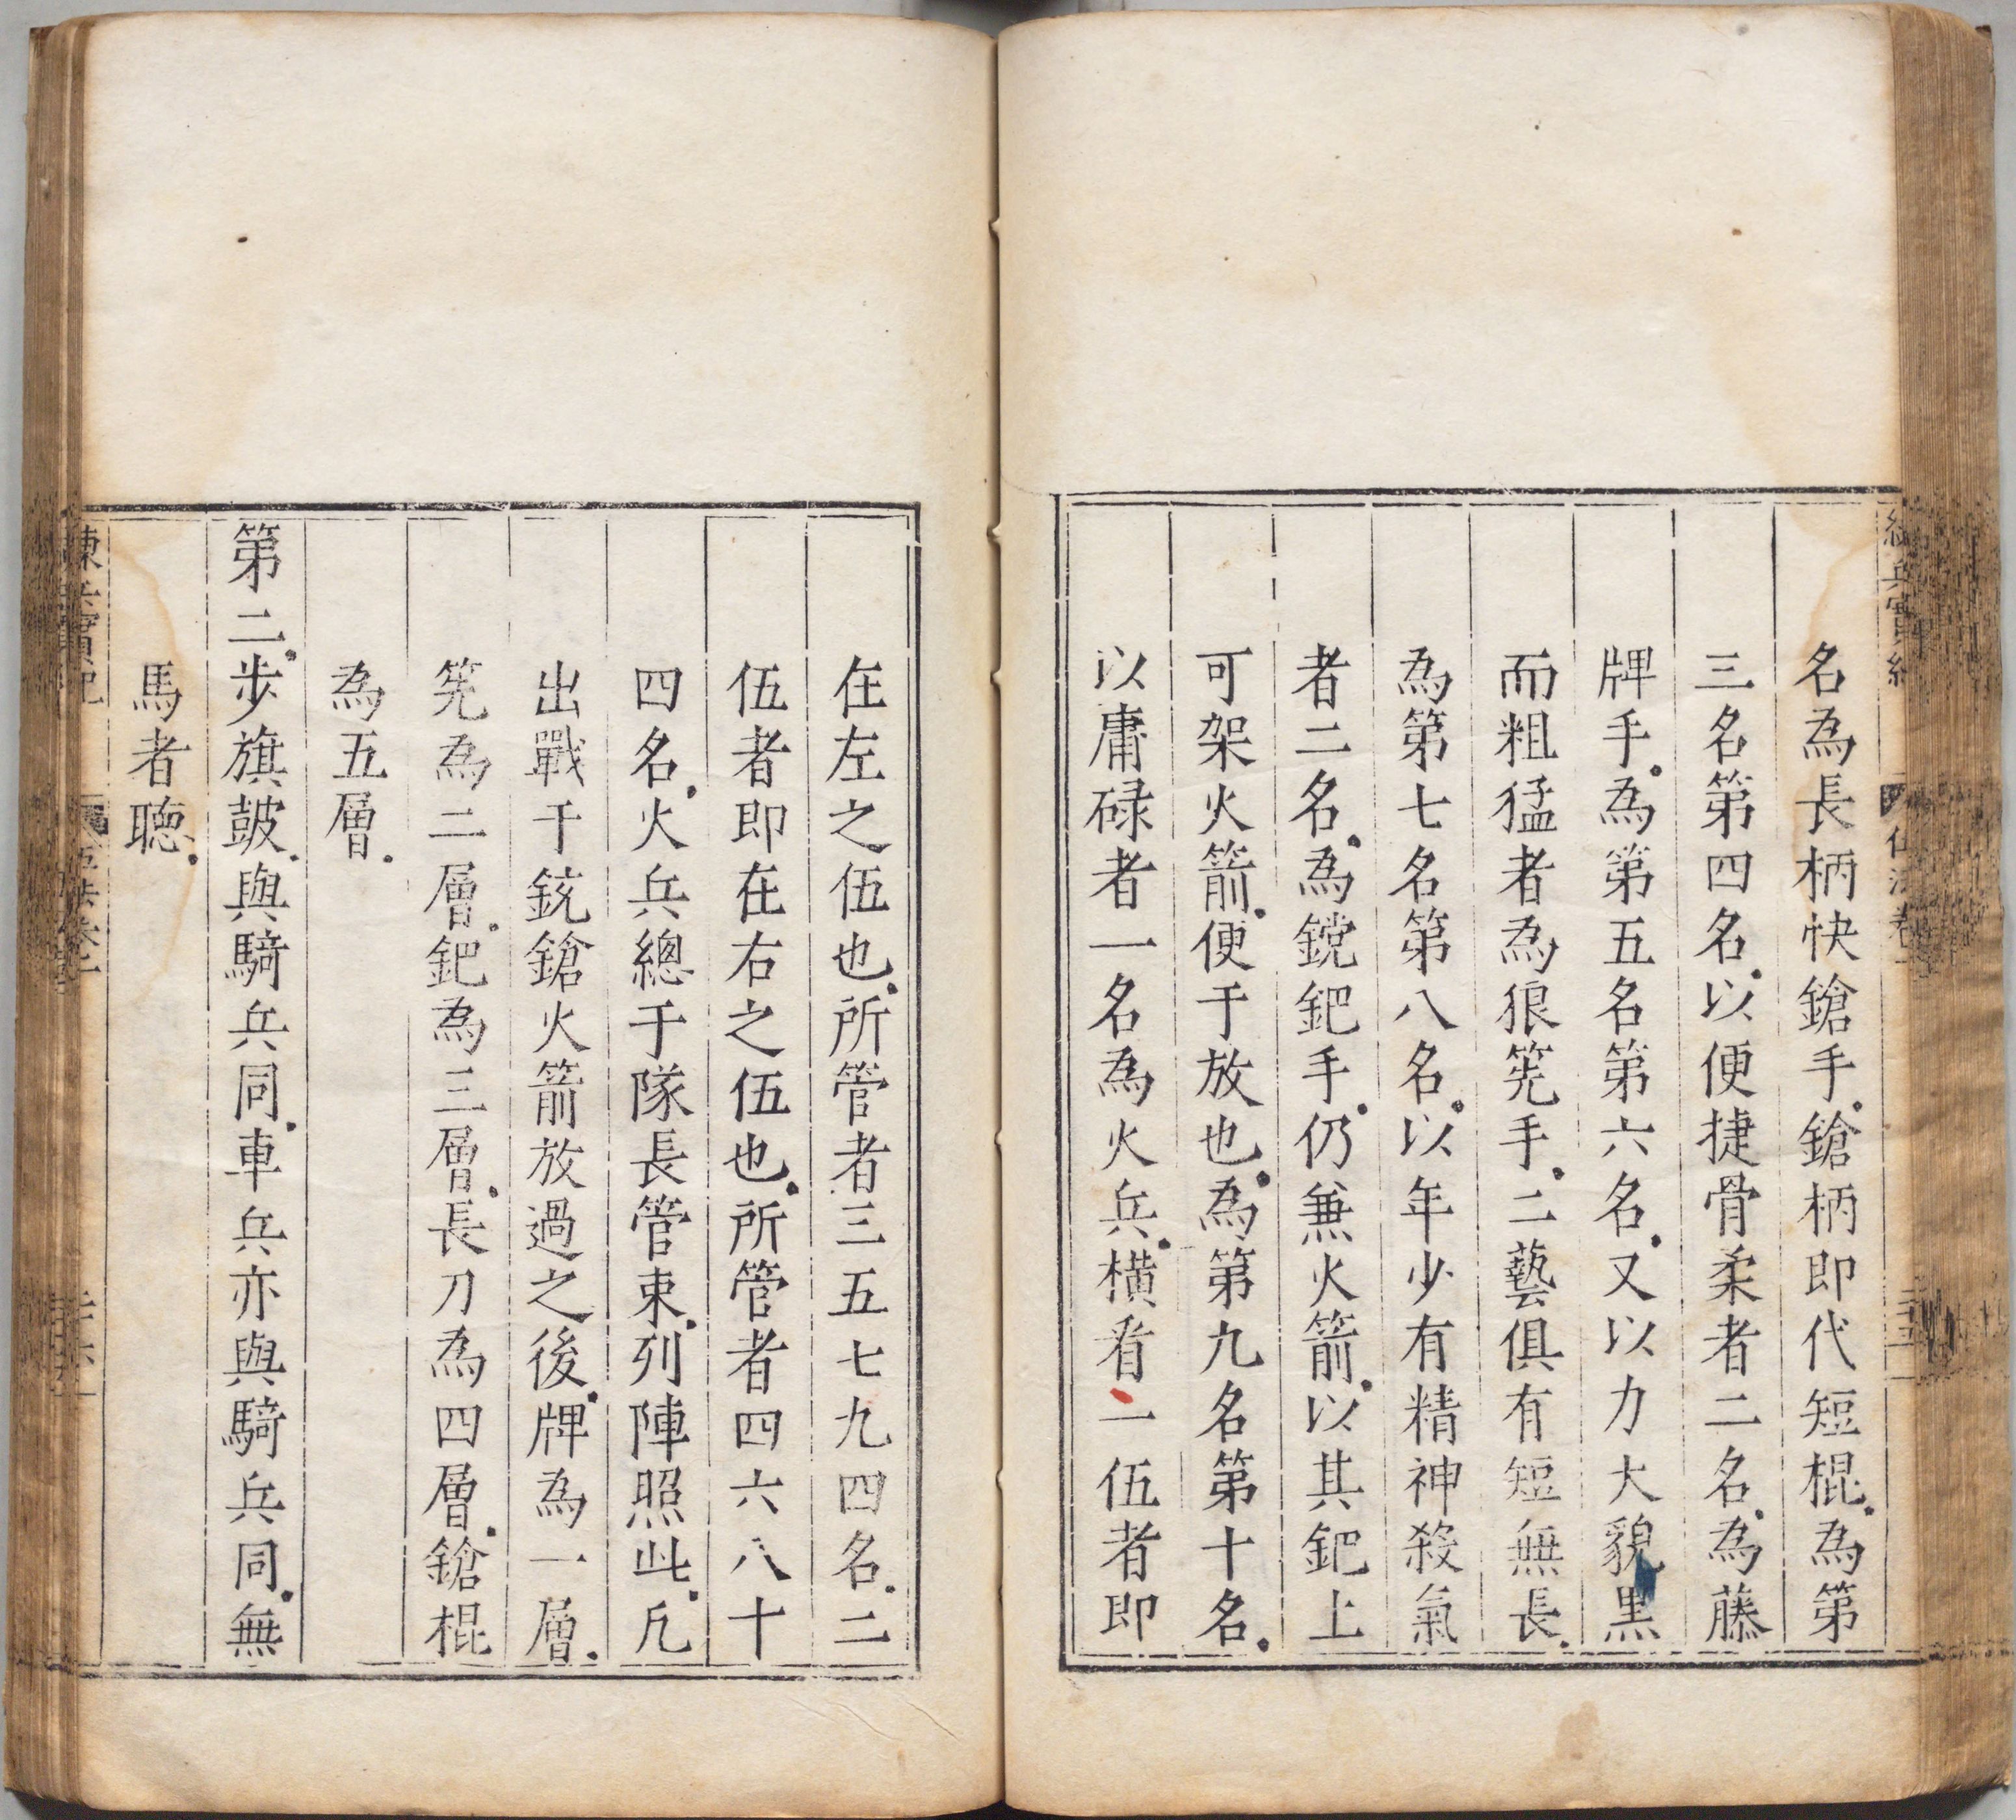 名為長柄快鎗手鎗柄即代短棍為第
三名第四名以便捷骨柔者二名為藤
牌手為第五名第六名又以力大貌黑
而粗猛者為狼筅手二藝俱有短無長
為第七名第八名以年少有精神殺氣
者二名為鎲鈀手仍兼火箭以其鈀上
可架火箭便于放也為第九名第十名
以庸碌者一名為火兵橫看一伍者即
在左之伍也所管者三五七九四名二
伍者即在右之伍也所管者四六八十
四名火兵總于隊長管束列陣照此凡
出戰干銃鎗火箭放過之後牌為一層
筅為二層鈀為三層長刀為四層鎗棍
為五層
第二步旗皷與騎兵同車兵亦與騎兵同無
馬者聴